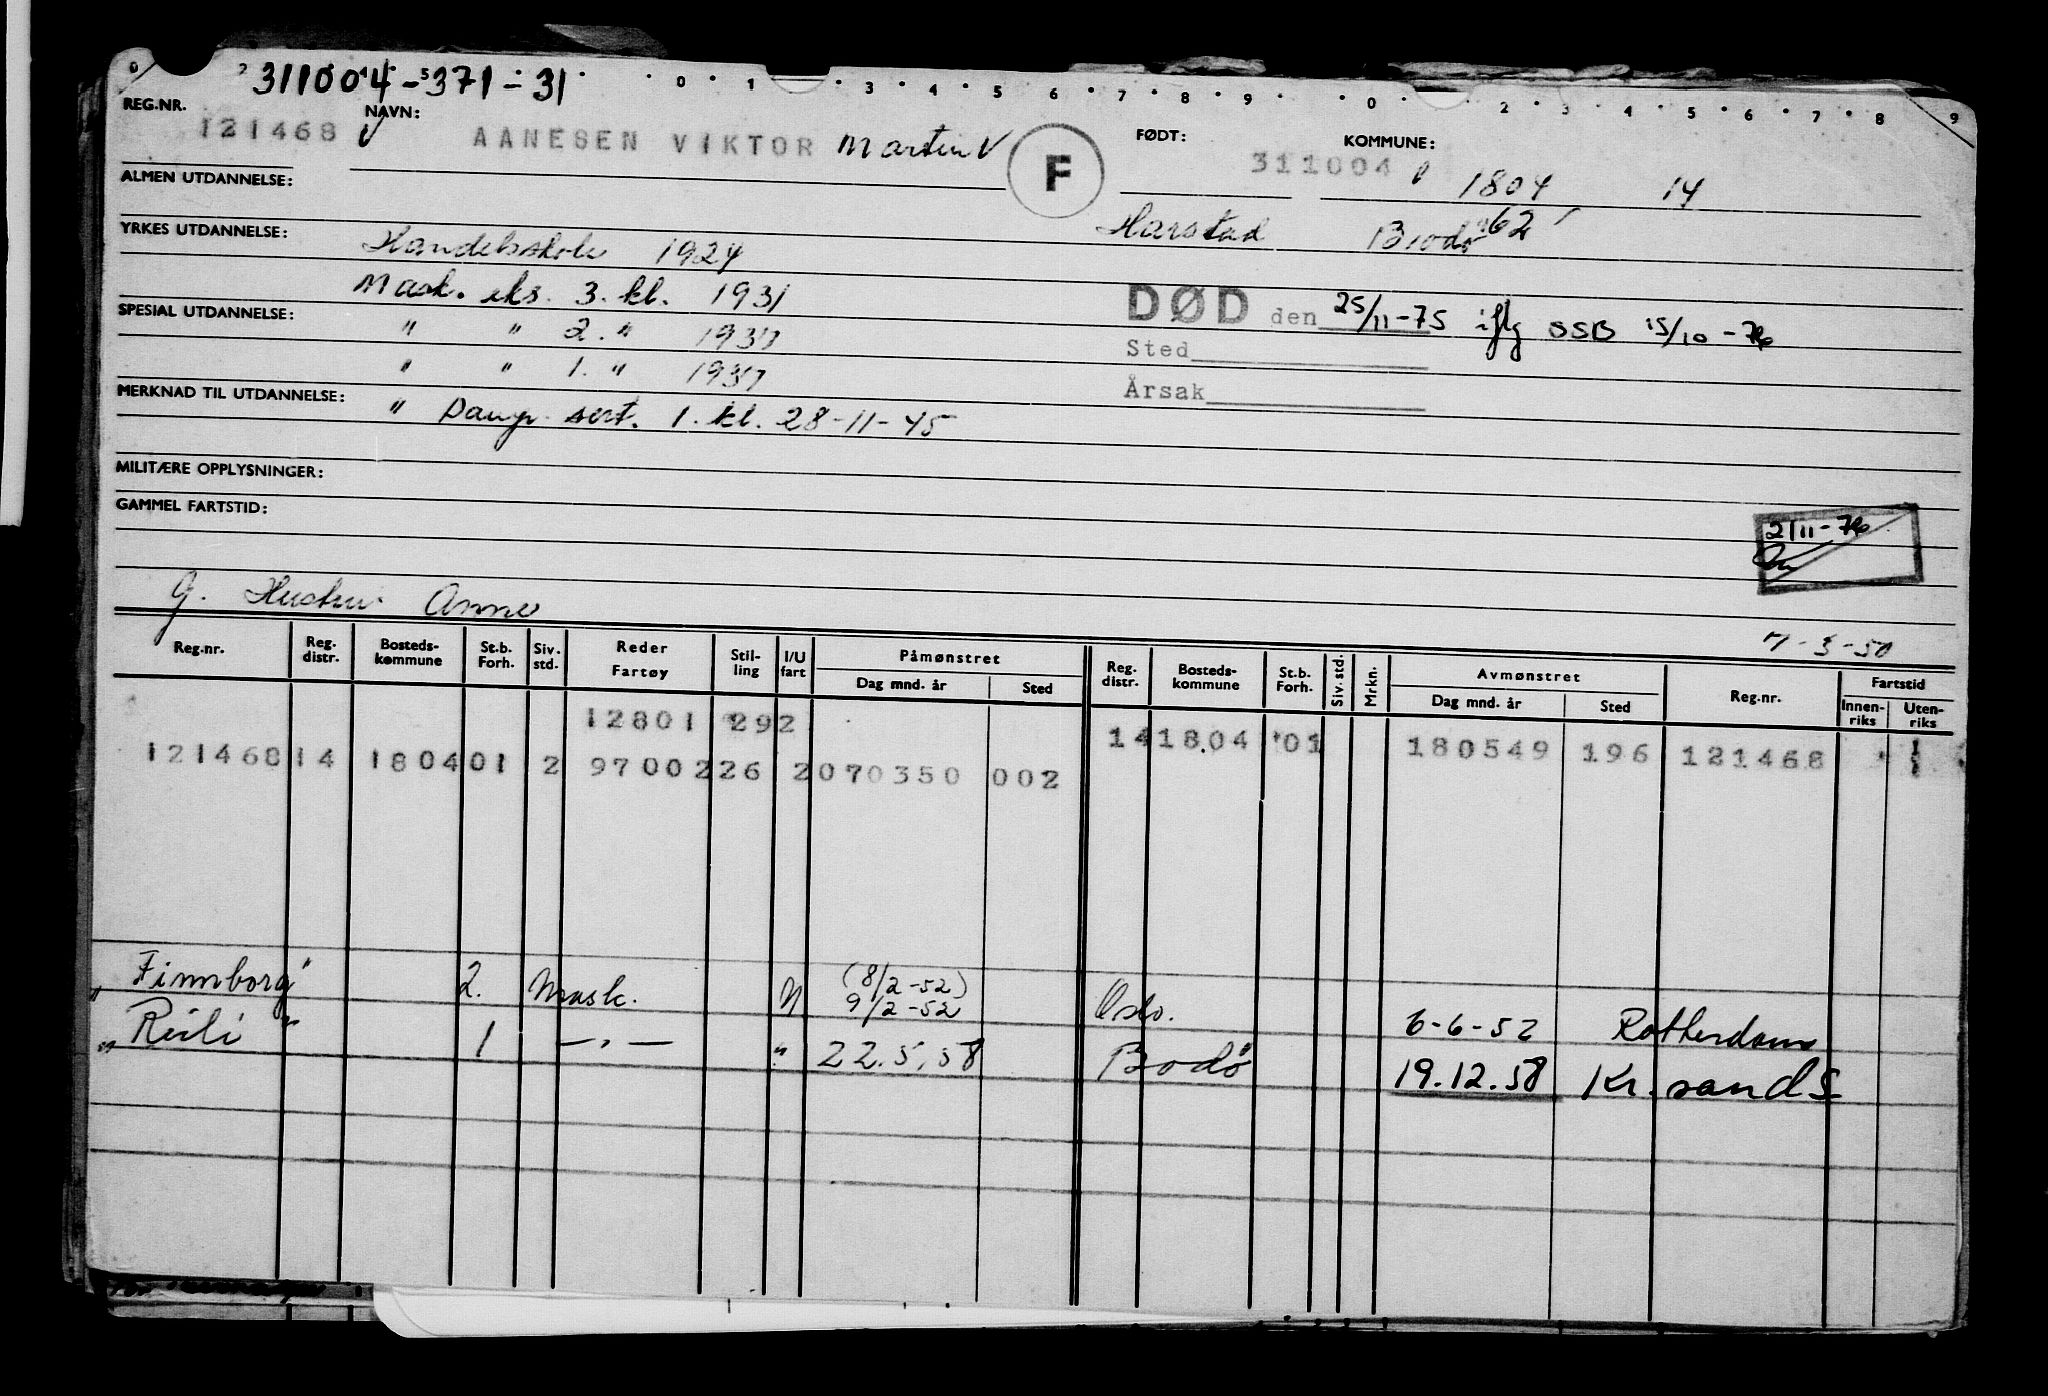 311004-371-31
0 1 3 4 5 6 7 8 9 0 2 3 4 5 6 7 8 9
REG.NR. NAVN: FØDT: KOMMUNE:
121468 V AANESEN VIKTOR Martin V F 311004 1804 14
ALMEN UTDANNELSE:
Harstad Bodø 62
YRKES UTDANNELSE: Handelsskole 1924
Mask. eks. 3. kl. 1931
DØD den 25/11-75 iflg SSB 15/10-76
SPESIAL UTDANNELSE: " " 2. " 1937
Sted
" " 1. " 1937
Årsak
MERKNAD TIL UTDANNELSE: " Damp sert. 1. kl. 28-11-45
MILITÆRE OPPLYSNINGER:
GAMMEL FARTSTID:
2/11-76
G. Hustru Anne
7-3-50
Reg.nr. Reg. distr. Bosteds-kommune St.b. Forh. Siv. std. Reder Fartøy Stil-ling I/U fart Påmønstret Dag mnd. år Sted Reg. distr. Bosteds-kommune St.b. Forh. Siv. std. Mrkn. Avmønstret Dag mnd. år Sted Reg.nr. Fartstid Innen-riks Uten-riks
12801 292 14 1804 01 180549 196 121468 1
121468 14 1804 01 2 97002 26 2 070350 002
"Finnborg" 2. Mask. U (8/2-52) 9/2-52 Oslo. 6-6-52 Rotterdam
"Reili" 1 -"- " 22.5.58 Bodø 19.12.58 Kr.sand S